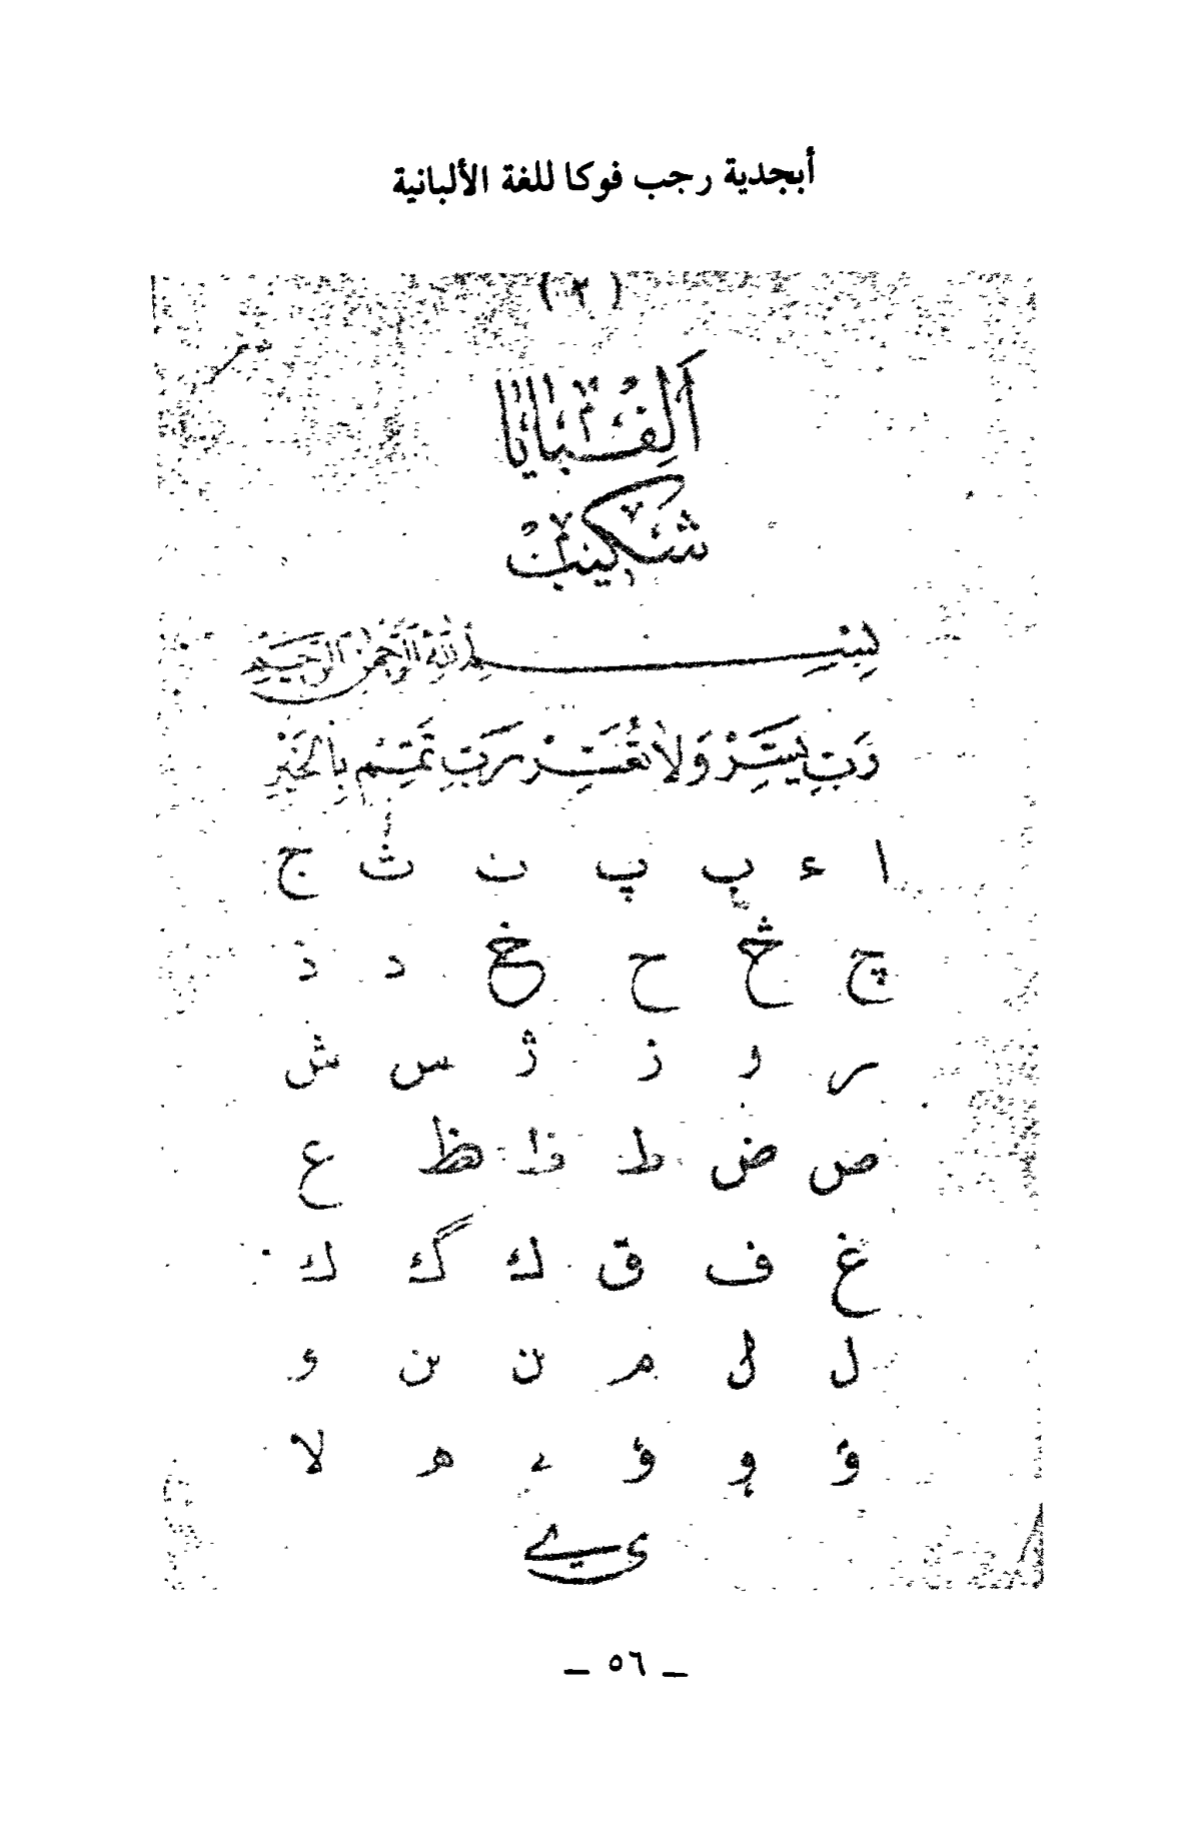 أبجدية رجب فوكا للغة الألبانية
( ٢ )
ألفبايا
شكيپ
بسم الله الرحمن الرحيم
رَبِّ يَسِّرْ وَلَا تُعَسِّرْ رَبِّ تَمِّمْ بِالْخَيْرِ
ا ء ب پ ت ث ج
چ څ ح خ د ذ
ر ز ژ س ش
ص ض ط ظ ع
غ ف ق ك گ ك
ل م ن و
ؤ ۋ ه لا
ي
ــ ٥٦ ــ